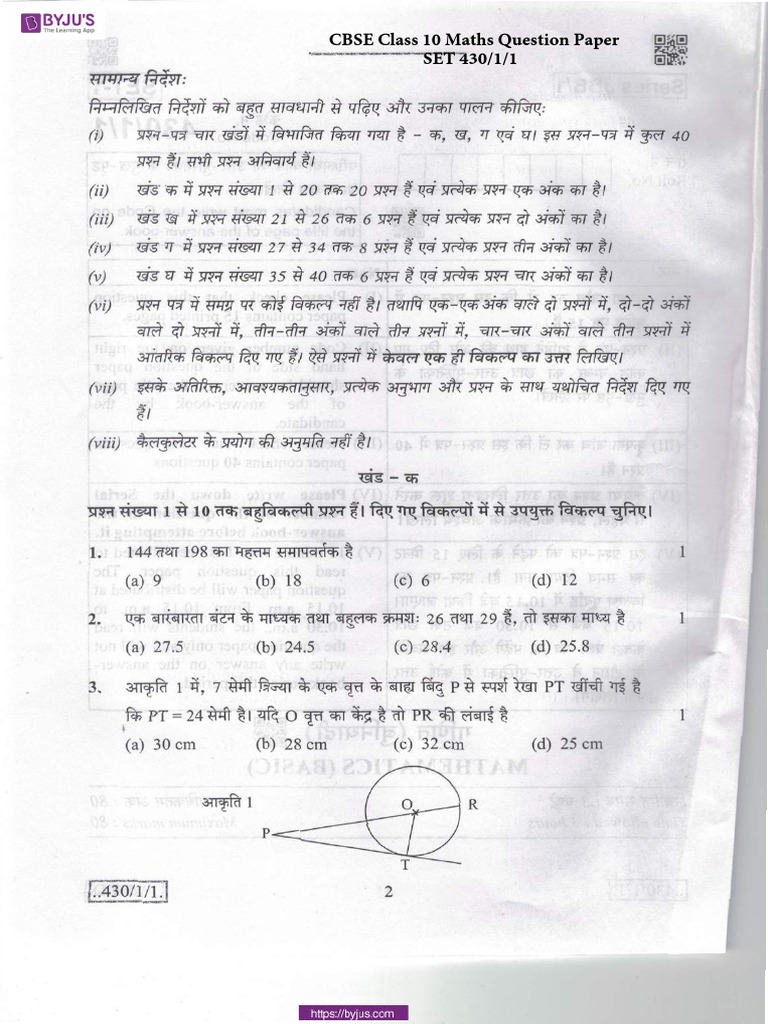 BYJU'S
The Learning App
CBSE Class 10 Maths Question Paper
SET 430/1/1
सामान्य निर्देशः
निम्नलिखित निर्देशों को बहुत सावधानी से पढ़िए और उनका पालन कीजिए:
(i) प्रश्न-पत्र चार खंडों में विभाजित किया गया है – क, ख, ग एवं घ। इस प्रश्न-पत्र में कुल 40
प्रश्न हैं। सभी प्रश्न अनिवार्य हैं।
(ii) खंड क में प्रश्न संख्या 1 से 20 तक 20 प्रश्न हैं एवं प्रत्येक प्रश्न एक अंक का है।
(iii) खंड ख में प्रश्न संख्या 21 से 26 तक 6 प्रश्न हैं एवं प्रत्येक प्रश्न दो अंकों का है।
(iv) खंड ग में प्रश्न संख्या 27 से 34 तक 8 प्रश्न हैं एवं प्रत्येक प्रश्न तीन अंकों का है।
(v) खंड घ में प्रश्न संख्या 35 से 40 तक 6 प्रश्न हैं एवं प्रत्येक प्रश्न चार अंकों का है।
(vi) प्रश्न पत्र में समग्र पर कोई विकल्प नहीं है। तथापि एक-एक अंक वाले दो प्रश्नों में, दो-दो अंकों
वाले दो प्रश्नों में, तीन-तीन अंकों वाले तीन प्रश्नों में, चार-चार अंकों वाले तीन प्रश्नों में
आंतरिक विकल्प दिए गए हैं। ऐसे प्रश्नों में केवल एक ही विकल्प का उत्तर लिखिए।
(vii) इसके अतिरिक्त, आवश्यकतानुसार, प्रत्येक अनुभाग और प्रश्न के साथ यथोचित निर्देश दिए गए
हैं।
(viii) कैलकुलेटर के प्रयोग की अनुमति नहीं है।
खंड – क
प्रश्न संख्या 1 से 10 तक बहुविकल्पी प्रश्न हैं। दिए गए विकल्पों में से उपयुक्त विकल्प चुनिए।
1. 144 तथा 198 का महत्तम समापवर्तक है 1
(a) 9 (b) 18 (c) 6 (d) 12
2. एक बारंबारता बंटन के माध्यक तथा बहुलक क्रमशः 26 तथा 29 हैं, तो इसका माध्य है 1
(a) 27.5 (b) 24.5 (c) 28.4 (d) 25.8
3. आकृति 1 में, 7 सेमी त्रिज्या के एक वृत्त के बाह्य बिंदु P से स्पर्श रेखा PT खींची गई है
कि PT = 24 सेमी है। यदि O वृत्त का केंद्र है तो PR की लंबाई है 1
(a) 30 cm (b) 28 cm (c) 32 cm (d) 25 cm
आकृति 1
O
R
P
T
..430/1/1.
2
https://byjus.com